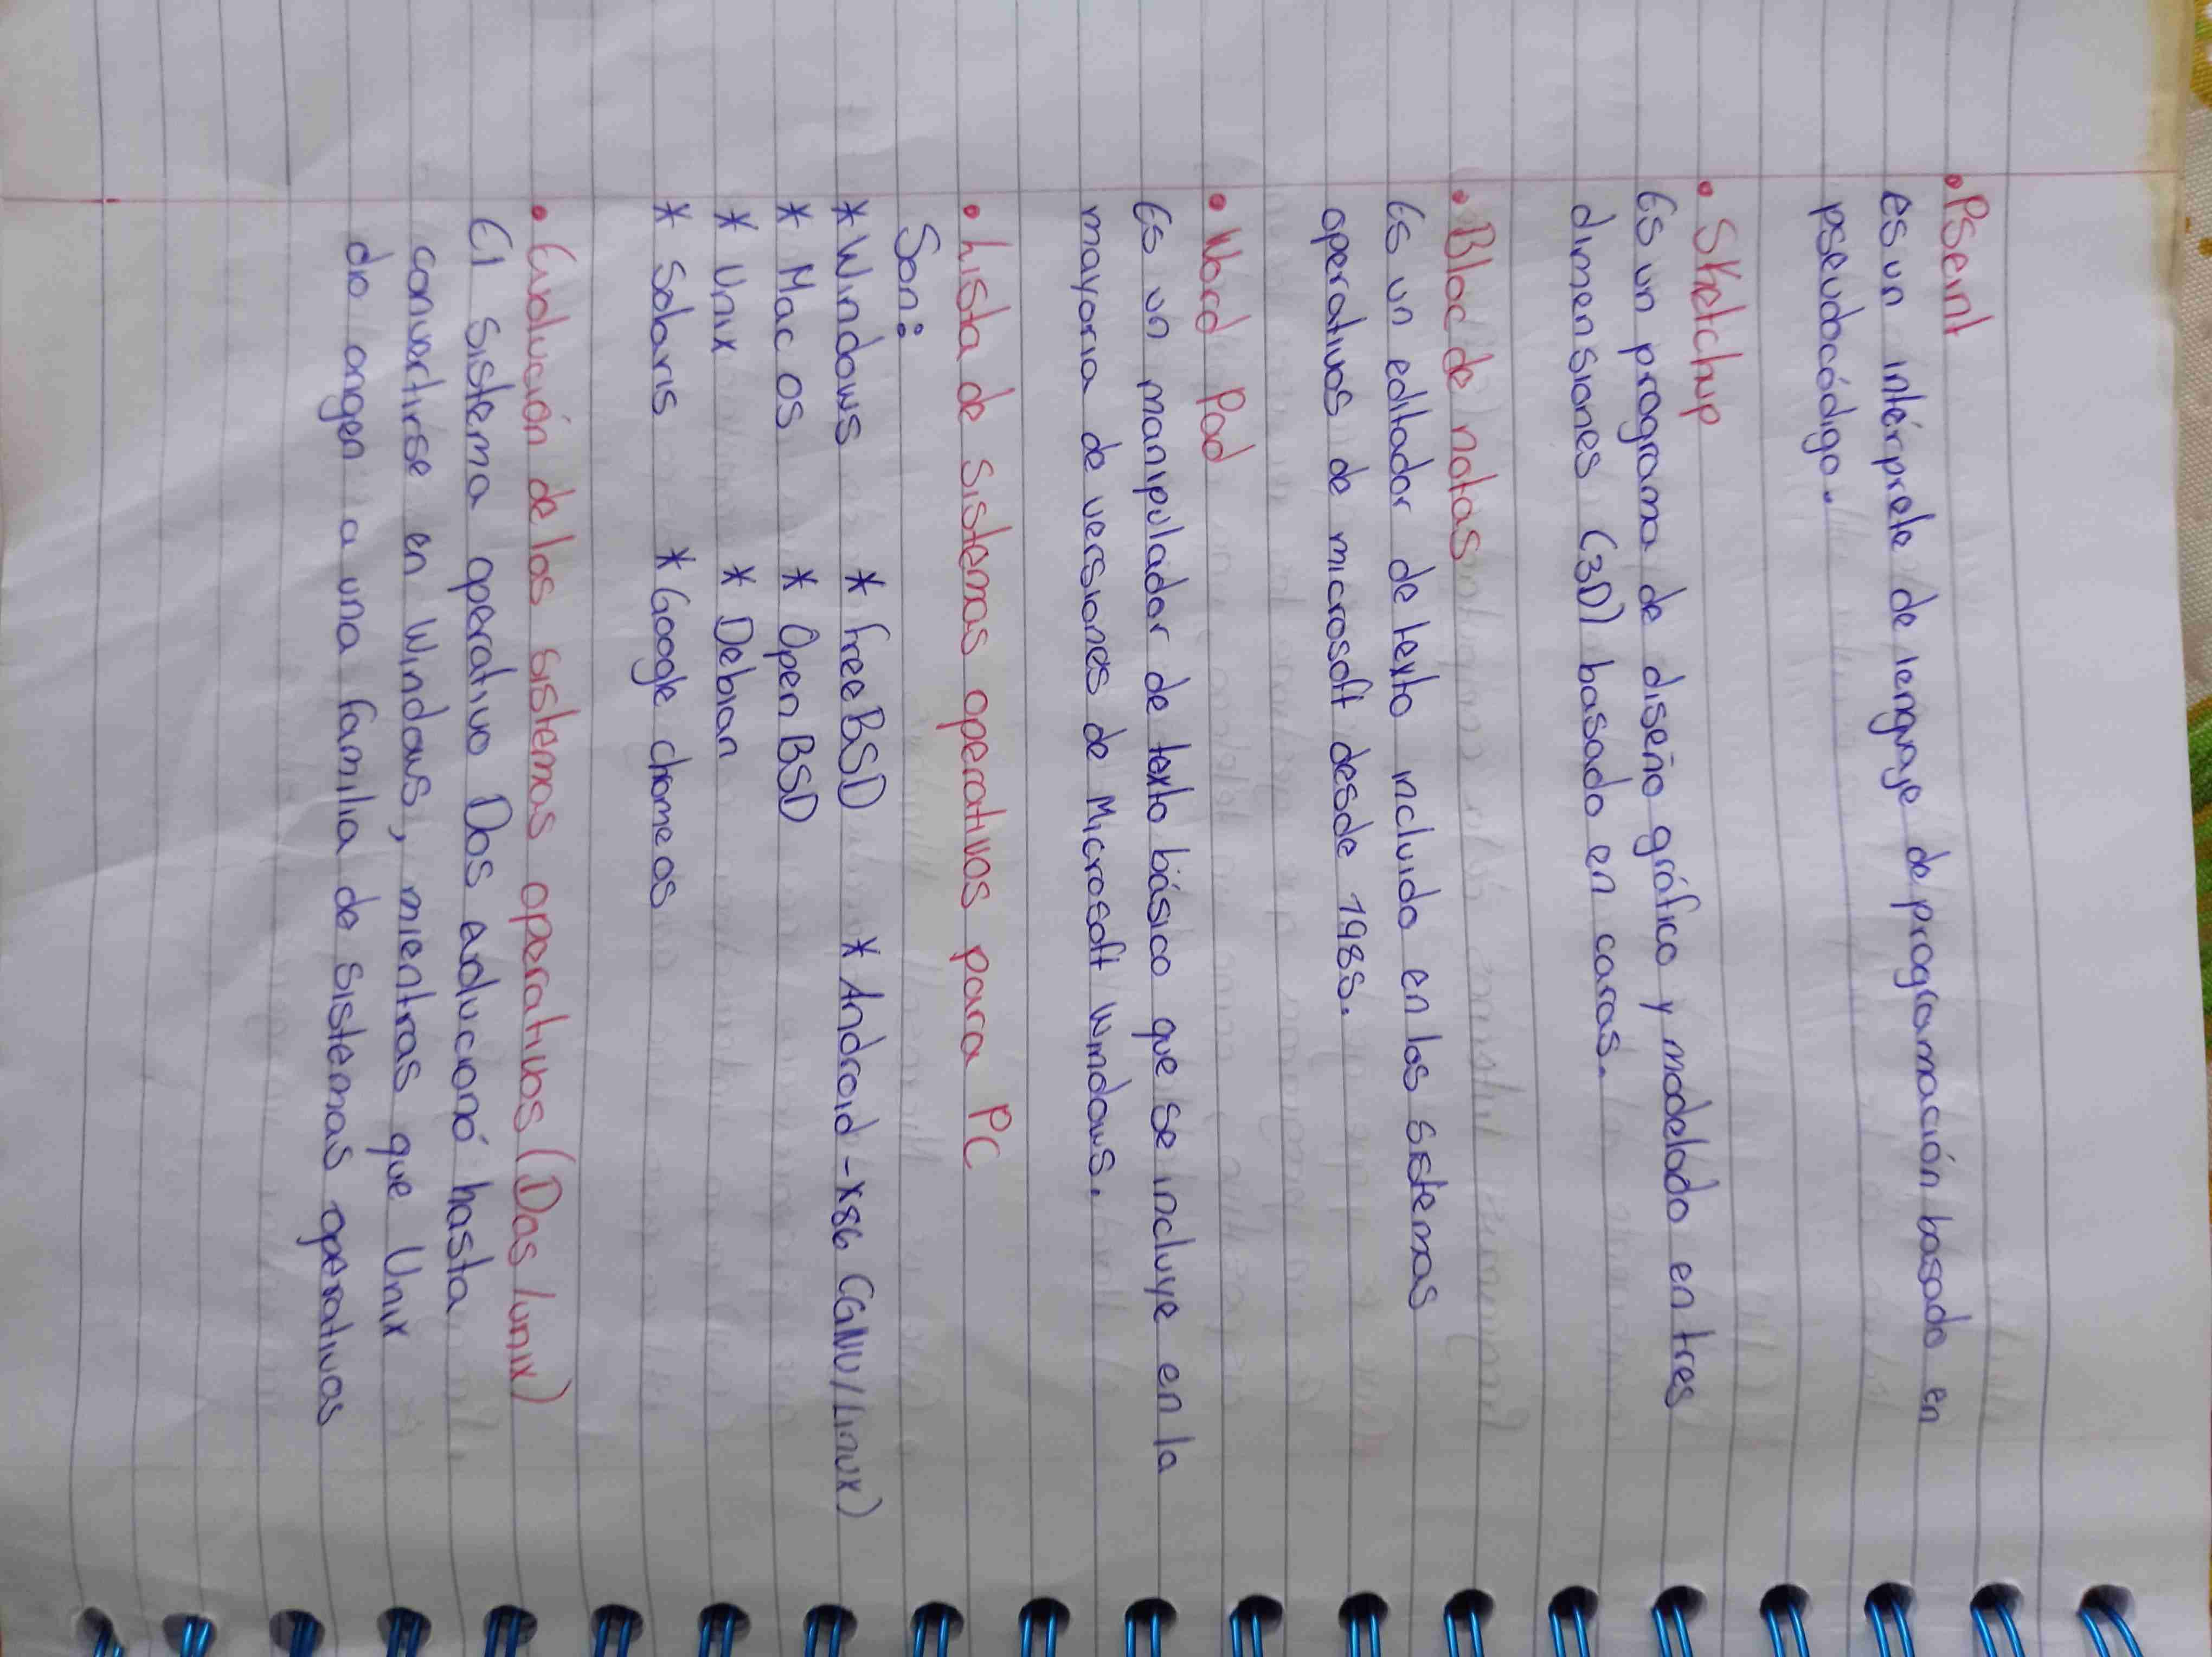 • PSeint
es un intérprete de lenguaje de programación basado en
pseudocódigo.
• Sketchup
Es un programa de diseño gráfico y modelado en tres
dimensiones (3D) basado en caras.
• Bloc de notas
Es un editador de texto incluido en los sistemas
operativos de microsoft desde 1985.
• Word Pad
Es un manipulador de texto básico que se incluye en la
mayoria de versiones de Microsoft Windows.
• Lista de sistemas operativos para PC
Son:
* Windows * FreeBSD * Android -x86 (GNU/Linux)
* Mac OS * Open BSD
* Unix * Debian
* Solaris * Google chrome os
• Evolución de los sistemas operativos (Dos/unix)
El sistema operativo Dos evolucionó hasta
convertirse en Windows, mientras que Unix
dio origen a una familia de sistemas operativos